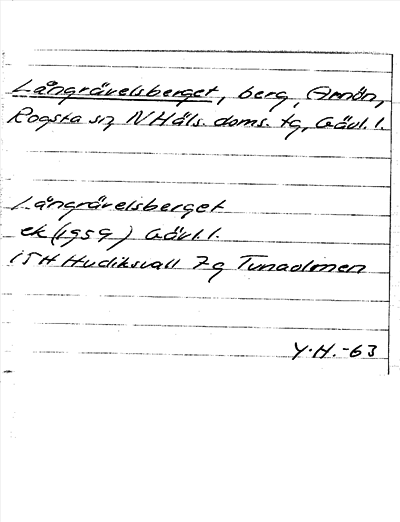 Långrävelsberget, berg, Arnön,
Rogsta sn NHäls. doms. tg, Gävl. l.
Långrävelsberget
ek (1959) Gävl. l.
15H Hudiksvall 7g Tunaolmen
Y.H.-63